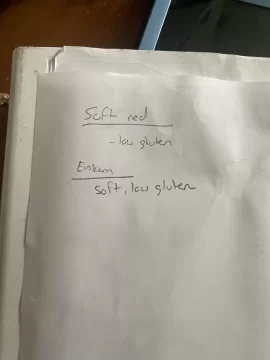 Soft red
- low gluten
Einkorn
soft, low gluten